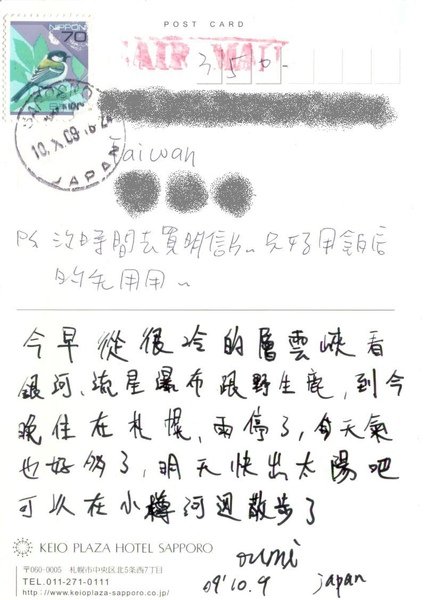 POST CARD
NIPPON
70
AIR MAIL
350
SAPPORO
10.X.09
JAPAN
Taiwan
PS 沒時間去買明信片~只好用飯店
的先用用~
今早從很冷的層雲峽看
銀河、流星瀑布跟野生鹿,到今
晚住在札幌,雨停了,
天氣
也好多了,明天快出太陽吧
可以在小樽河邊散步了
KEIO PLAZA HOTEL SAPPORO
〒060-0005 札幌市中央区北5条西7丁目
TEL.011-271-0111
http://www.keioplaza-sapporo.co.jp/
09' 10.9
japan